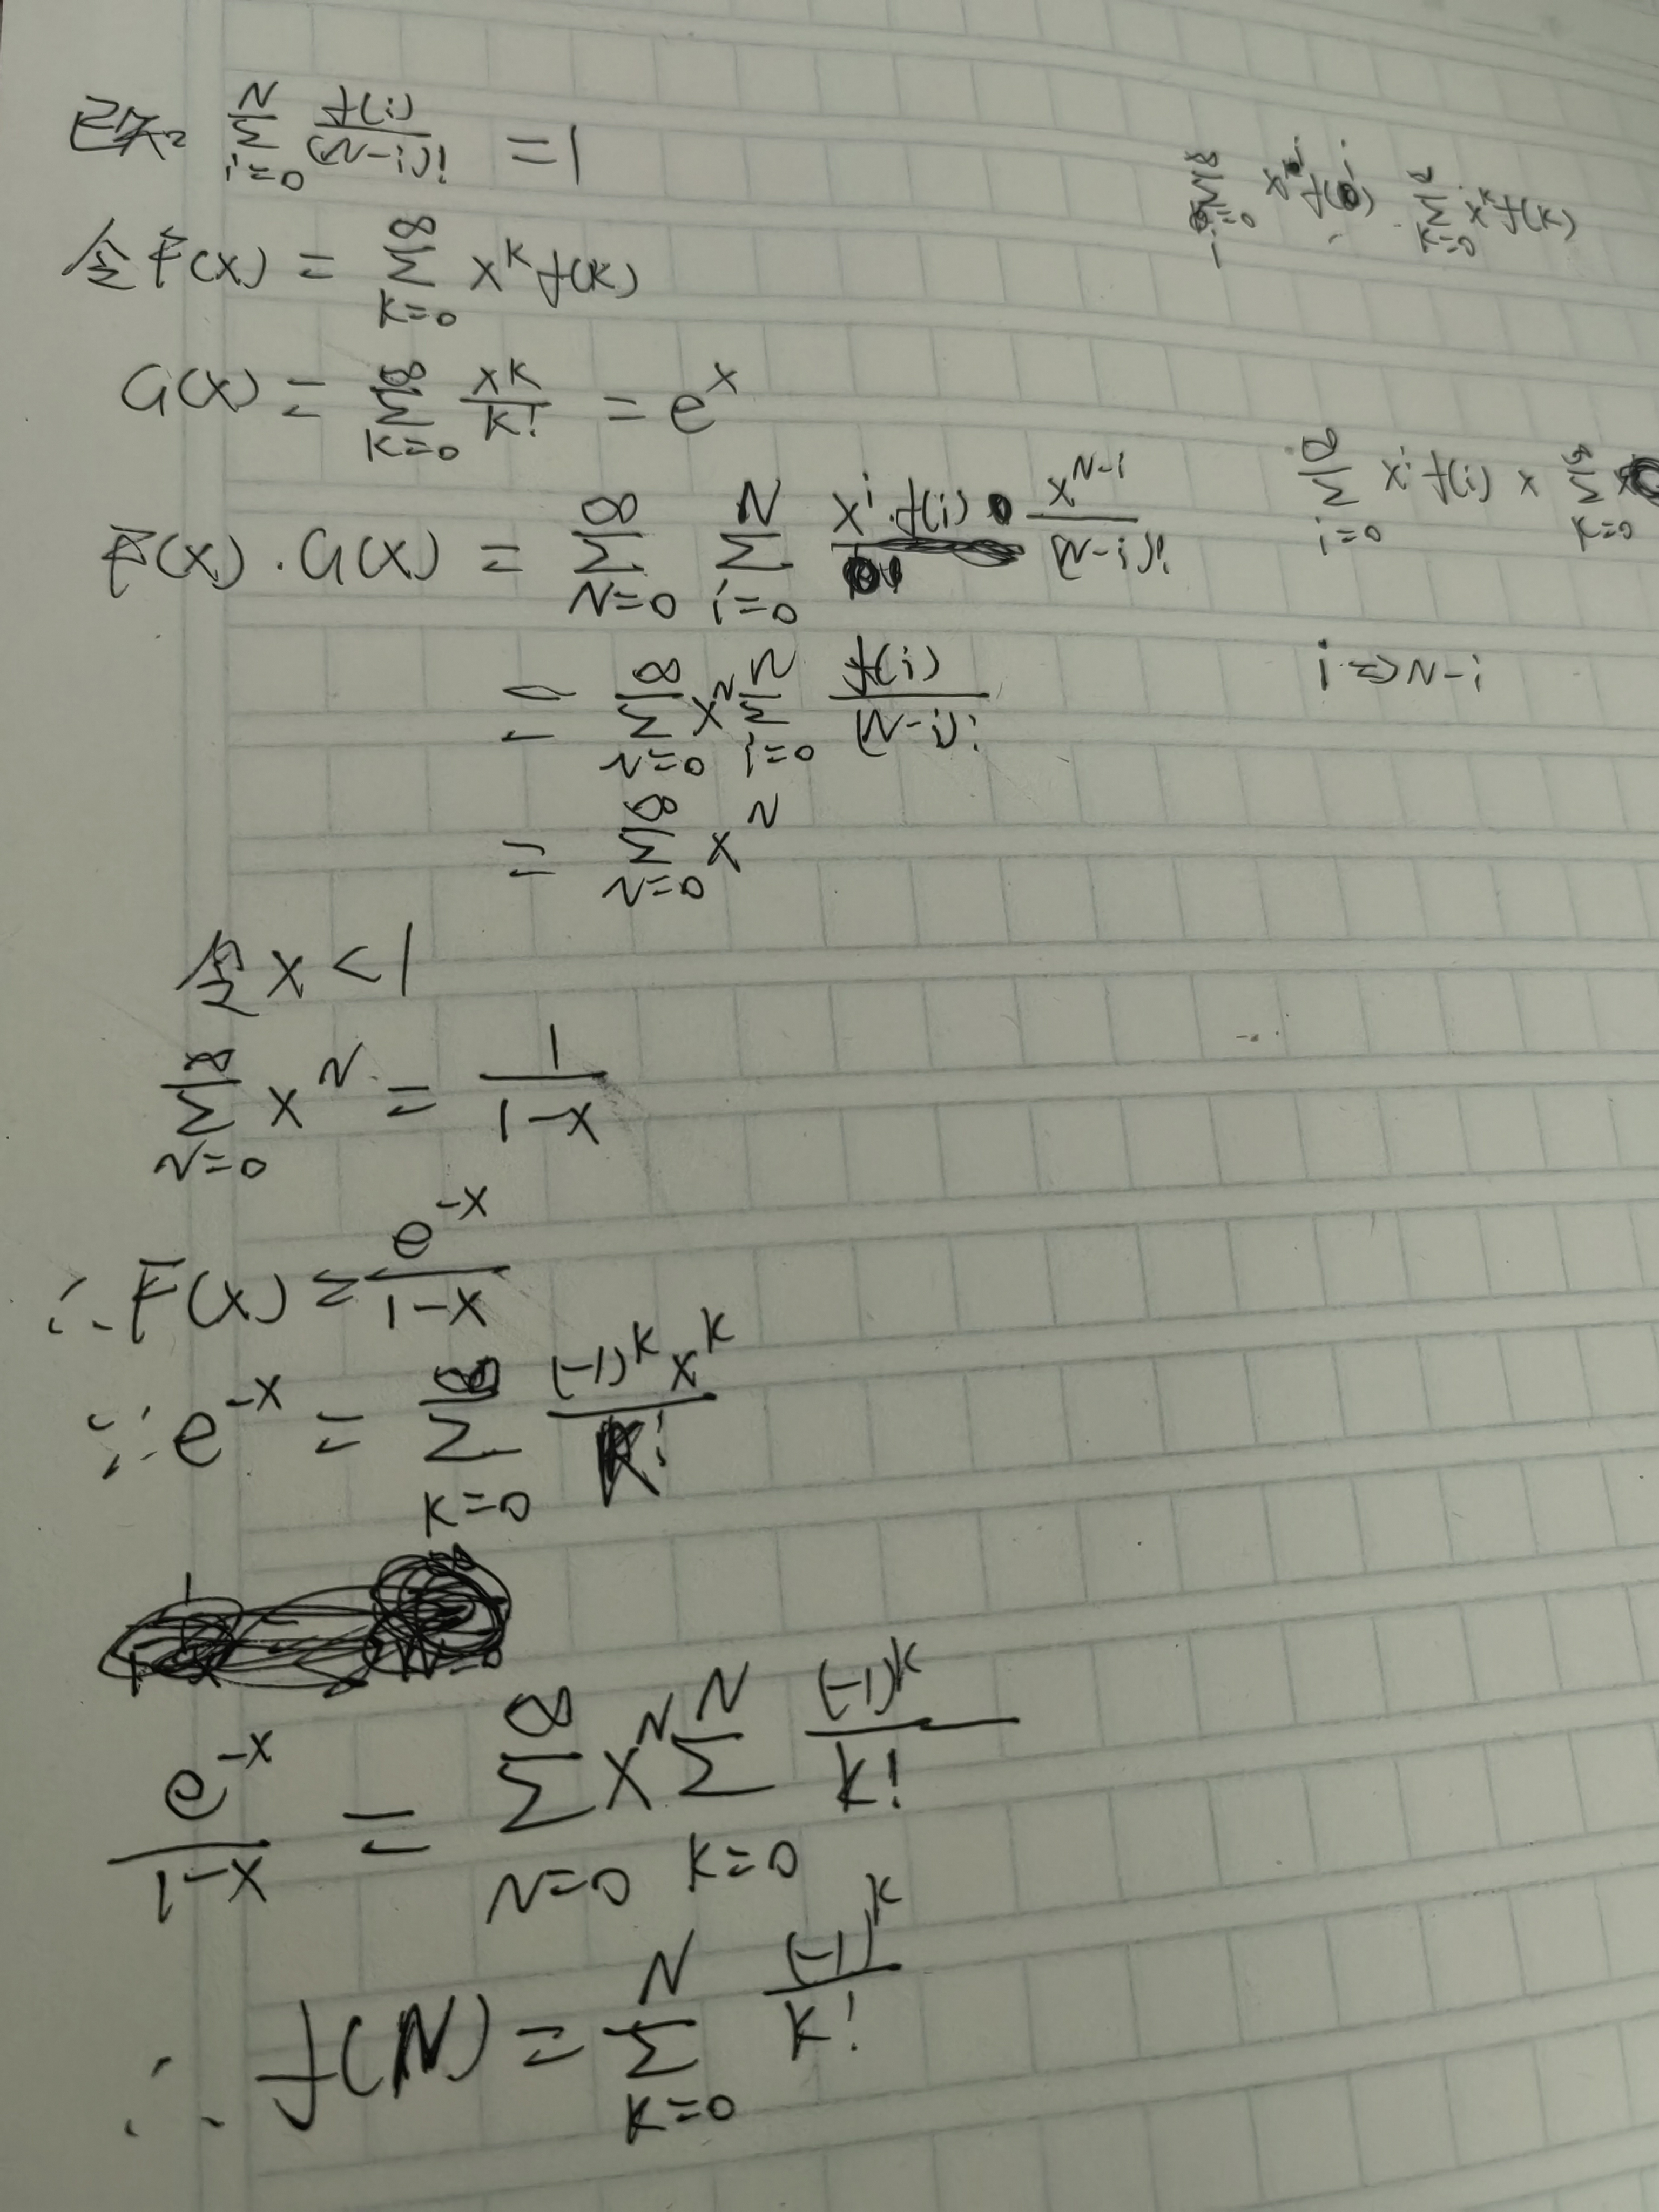 已知 \sum_{i=0}^{N} \frac{f(i)}{(N-i)!} = 1
\sum_{i=0}^{∞} x^i f(i) \sum_{k=0}^{∞} x^k f(k)
令 F(x) = \sum_{k=0}^{∞} x^k f(k)
G(x) = \sum_{k=0}^{∞} \frac{x^k}{k!} = e^x
\sum_{i=0}^{∞} x^i f(i) × \sum_{k=0}^{∞}
F(x)·G(x) = \sum_{N=0}^{∞} \sum_{i=0}^{N} x^i · f(i) · \frac{x^{N-i}}{(N-i)!}
i ⇒ N-i
= \sum_{N=0}^{∞} x^N \sum_{i=0}^{N} \frac{f(i)}{(N-i)!}
= \sum_{N=0}^{∞} x^N
令 x < 1
\sum_{N=0}^{∞} x^N = \frac{1}{1-x}
∴ F(x) = \frac{e^{-x}}{1-x}
∵ e^{-x} = \sum_{k=0}^{∞} \frac{(-1)^k x^k}{k!}
\frac{e^{-x}}{1-x} = \sum_{N=0}^{∞} x^N \sum_{k=0}^{N} \frac{(-1)^k}{k!}
∴ f(N) = \sum_{k=0}^{N} \frac{(-1)^k}{k!}